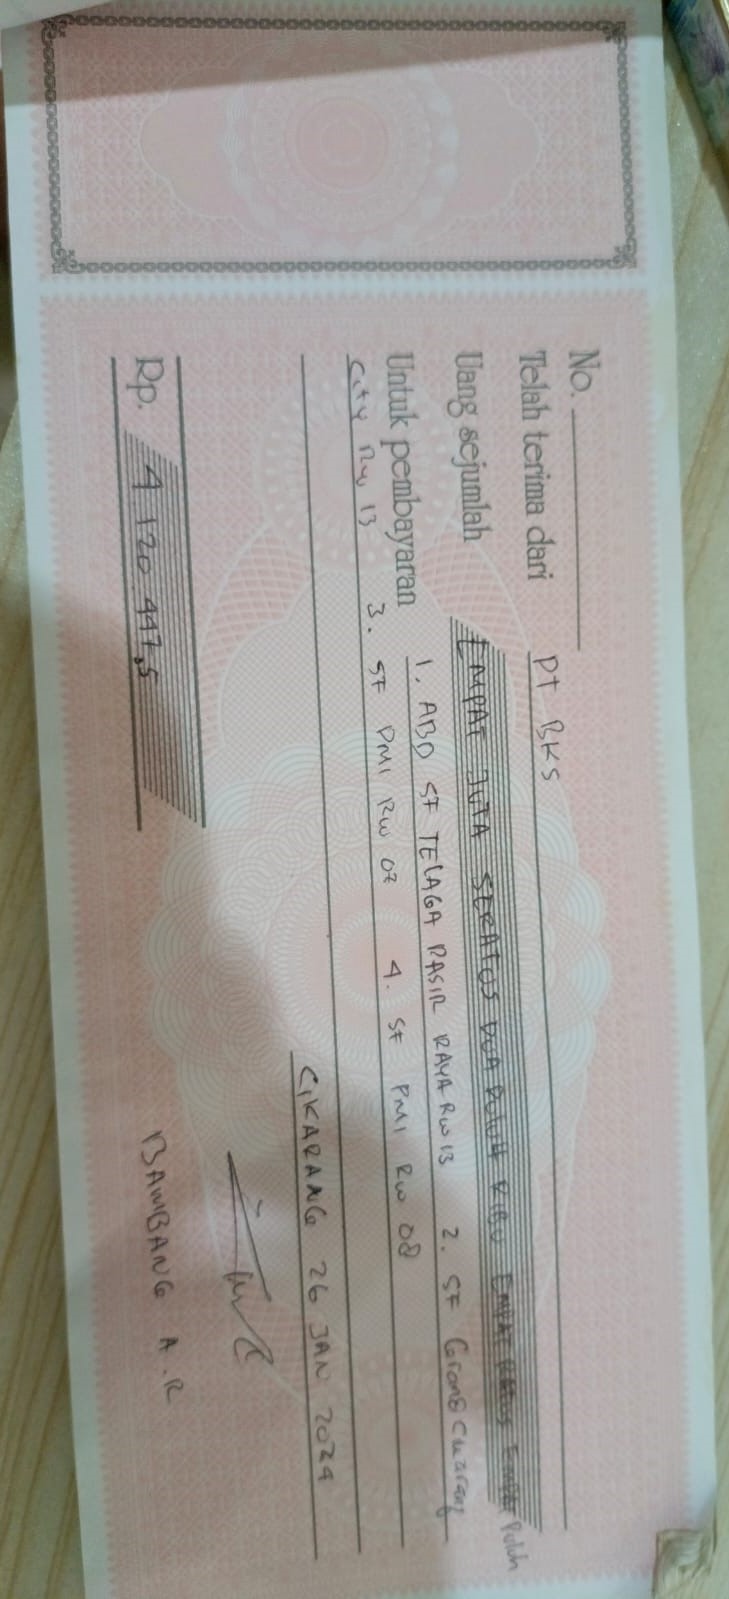 No.
Telah terima dari PT BKS
Uang sejumlah EMPAT JUTA SERATUS DUA PULUH RIBU EMPAT RATUS EMPAT Puluh
Untuk pembayaran 1. ABD SF TELAGA PASIR RAYA RW 13 2. SF Grand Cikarang
City RW 13 3. SF PMI RW 07 4. SF PMI RW 08
CIKARANG 26 JAN 2024
Rp. 4 120.447,5
BAMBANG A.R